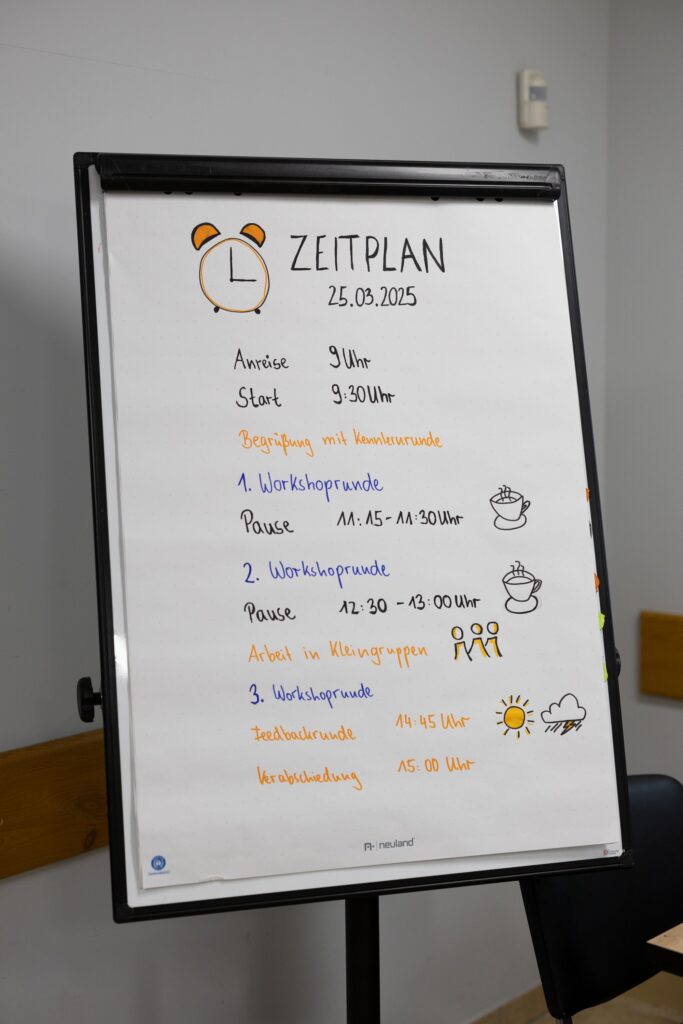 ZEITPLAN
25.03.2025
Anreise 9 Uhr
Start 9:30 Uhr
Begrüßung mit Kennlernrunde
1. Workshoprunde
Pause 11:15-11:30 Uhr
2. Workshoprunde
Pause 12:30 - 13:00 Uhr
Arbeit in Kleingruppen
3. Workshoprunde
Feedbackrunde 14:45 Uhr
Verabschiedung 15:00 Uhr
neuland